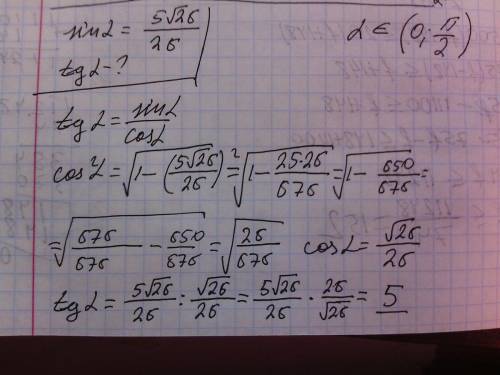 sin α = 5√26/26
α ∈ (0; π/2)
tg α - ?
tg α = sin α/cos α
cos α = √(1 - (5√26/26)²) = √(1 - 25·26/676) = √(1 - 650/676) =
= √(676/676 - 650/676) = √(26/676) cos α = √26/26
tg α = 5√26/26 : √26/26 = 5√26/26 · 26/√26 = 5